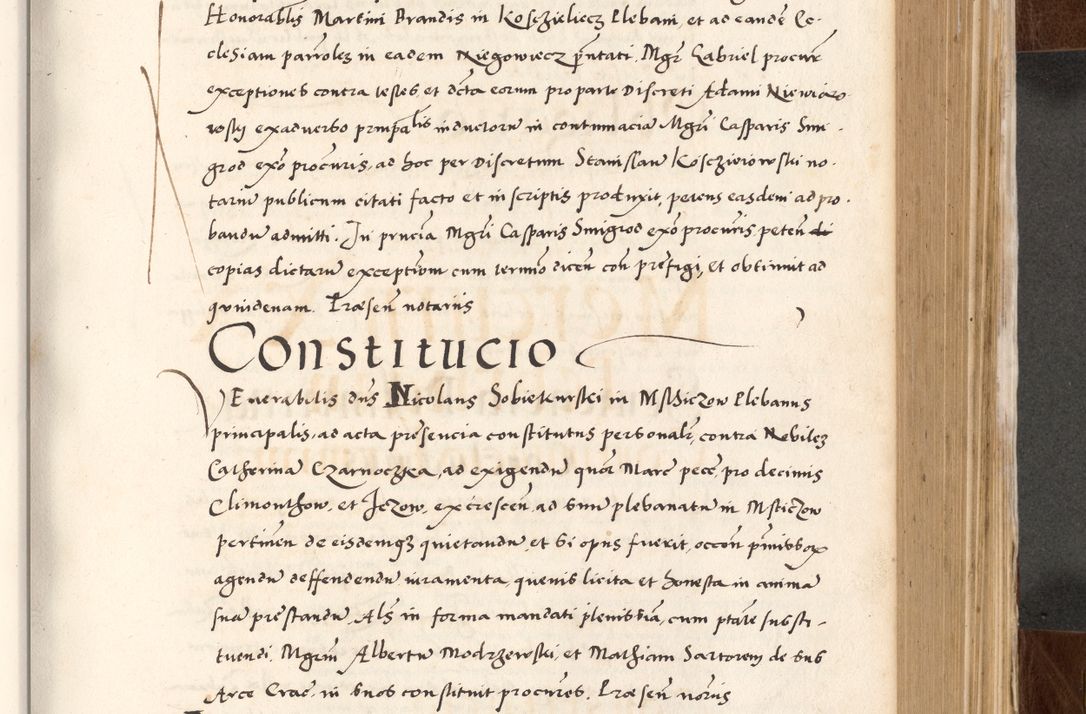 Honorablis Martini Brandis in Koschielecz Plebani, et ad eandē Ec-
clesiam parrolez in eadem Niegowiecz pñtati, Mgr Gabriel procur
exceptiones contra testes et dcta eorum pro parte Discreti Adami Niewiaro
wsky ex adverso prinpalis inductorū in contumaciā Mgri Casparis Smi-
grod exō procuris, ad hoc per Discretum Stanislaū Koscziriowski no-
tariū publicum citati facto et in scriptis produxit, petens easdem ad pro-
bandū admitti. In prncia Mgri Casparis Smigrod exō procuris peteñ
copias dictarū exceptioñ cum termīo diceñ coñ prefigi, et obtinuit ad
quindenam. Præseñ notariis
Constitucio
VEnerabilis dñs Nicolaus Sobiekurski in Msthiczow Plebanus
principalis, ad acta presencia constitutus personalr, contra Nobilez
Catherinā Czarnoczka, ad exigendū quor Marc pece, pro decimis
Climonthow, et Jezow, excresceñ, ad suū plebanatū in Msticzow
pertineñ de eisdemqz quietandū, et si opus fuerit, occōn pmissox
agendū deffendendū iuramenta, quevis licita et honesta in animā
suā prestandū Als in forma mandati plenissia, cum ptāte substi-
tuendi, Mgrm Albertū Modrzewski, et Mathiam Sartorem de sub
Arce Crac, in suos constituit procures, Præseñ noriis